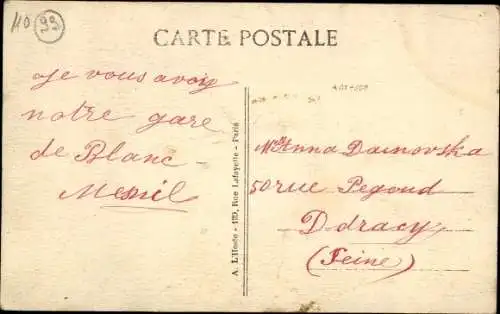 CARTE POSTALE
Je vous avoy
notre gare
de Blanc
Mesnil
A. L'Hoste - 199, Rue Lafayette - Paris
Mlle Anna Darnovska
50 rue Pegoud
Ddracy
(Seine)